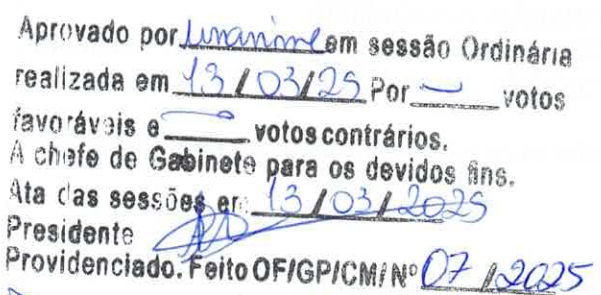 Aprovado por unanime em sessão Ordinária
realizada em 13/03/25 Por — votos
favoráveis e — votos contrários.
A chefe de Gabinete para os devidos fins.
Ata das sessões em 13/03/2025
Presidente
Providenciado. Feito OF/GP/CM/Nº 07/2025